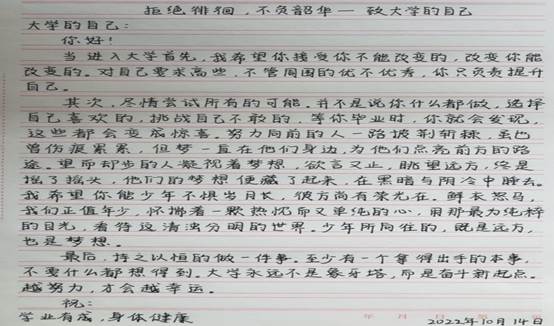 拒绝徘徊,不负韶华——致大学的自己
大学的自己:
你好!
当进入大学首先,我希望你接受你不能改变的,改变你能
改变的。对自己要求高些,不管周围的优不优秀,你只负责提升
自己。
其次,尽情尝试所有的可能。并不是说你什么都做,选择
自己喜欢的,挑战自己不敢的,等你毕业时,你就会发现,
这些都会变成惊喜。努力向前的人一路披荆斩棘,虽也
曾伤痕累累,但梦一直在他们身边,为他们点亮前方的路
途。望而却步的人凝视着梦想,欲言又止,眺望远方,终是
摇了摇头,他们的梦想便藏了起来,在黑暗与阴冷中睡去。
我希望你能少年不惧岁月长,彼方尚有荣光在。鲜衣怒马,
我们正值年少,怀揣着一颗热忱而又单纯的心,用那最为纯粹
的目光,看待这清浊分明的世界。少年所向往的,既是远方,
也是梦想。
最后,持之以恒的做一件事。至少有一个拿得出手的本事,
不要什么都想得到。大学永远不是象牙塔,而是奋斗新起点。
越努力,才会越幸运。
祝:
学业有成,身体健康
年 月 日
2022年10月14日